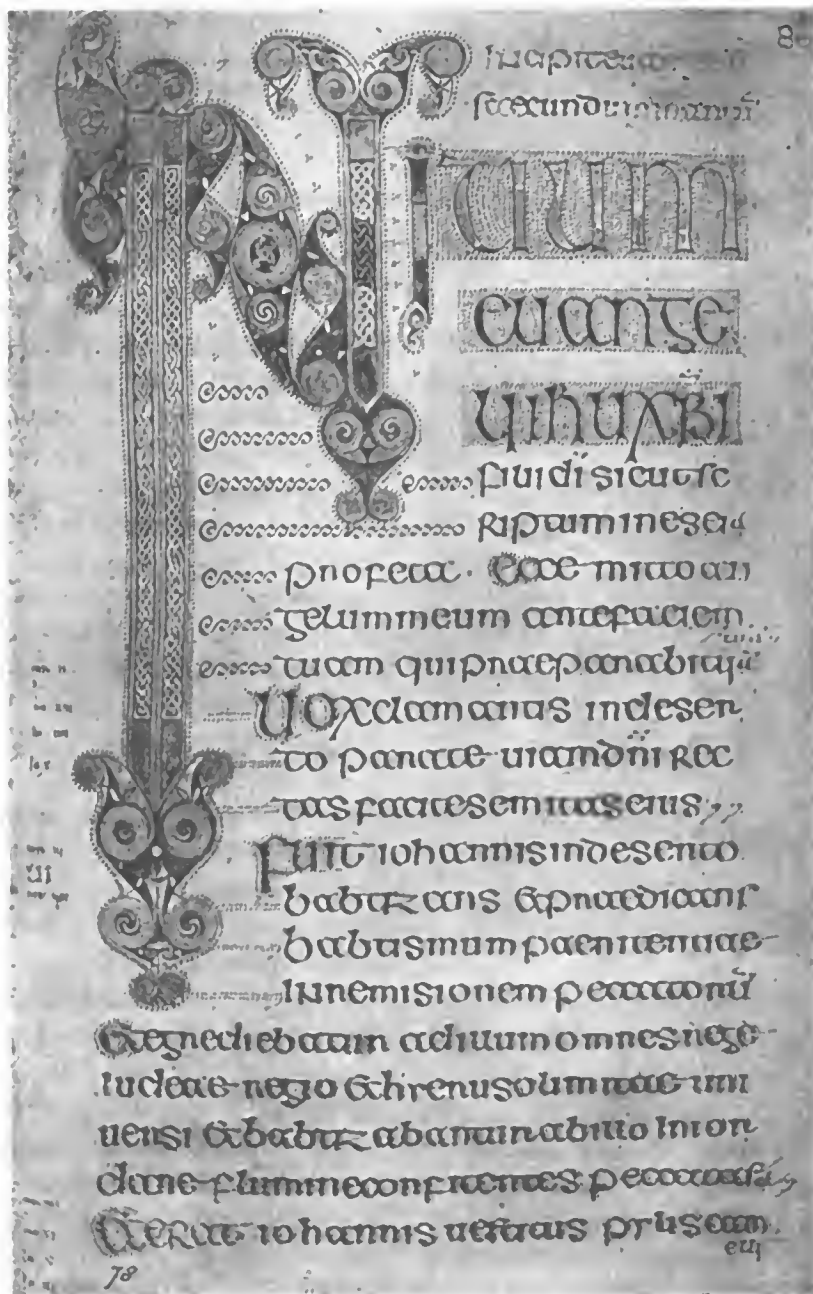 INITIUM
EUANGE
LII IHU XPI
filii di sicut sc
riptum in eseia
profeta. Ecce mitto an
gelum meum ante faciem
tuam qui praeparabit ui
Uox clamantis in deser
to parate uiam dni rec
tas facite semitas eius
Fuit iohannis in deserto
babtizans & praedicans
babtismum paenitentiae
In remisionem peccatorū
& egrediebatur ad illum omnes rege
iudeae regio & hierusolimitae uni
uersi & babtizabantur ab illo In ior
dane flumine confitentes peccata sa
& erat iohannis uestitus pilis cam
eli
78